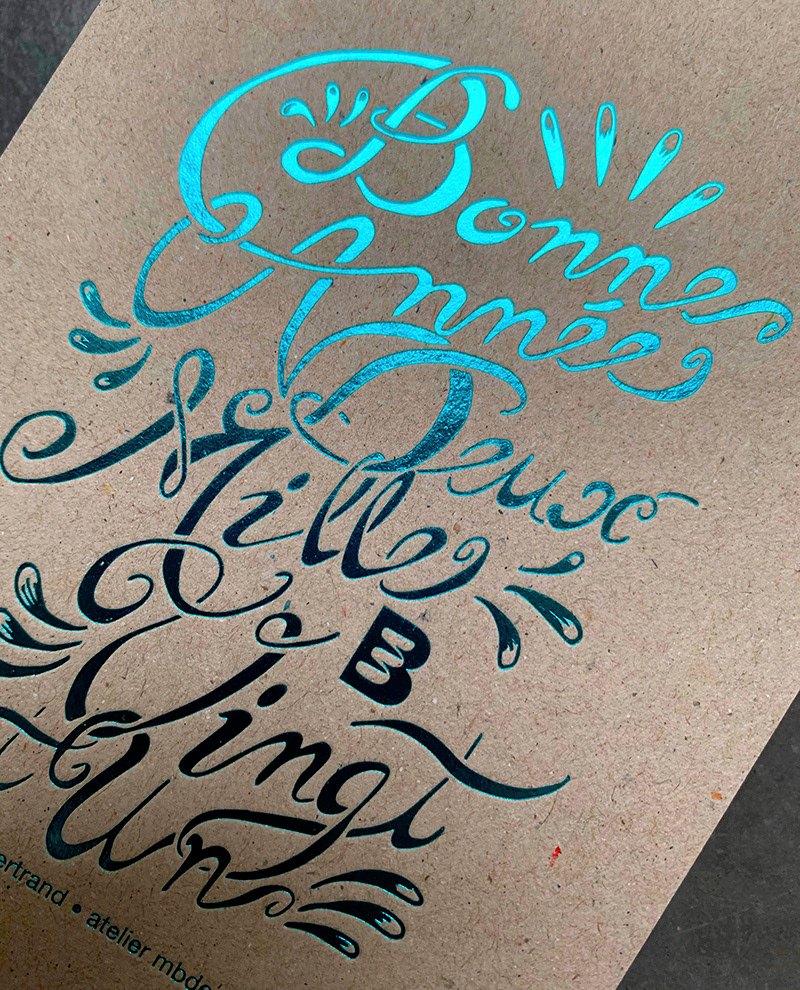 Bonne
Année
Deux
Mille
B
Vingt
Un
ertrand • atelier mbde